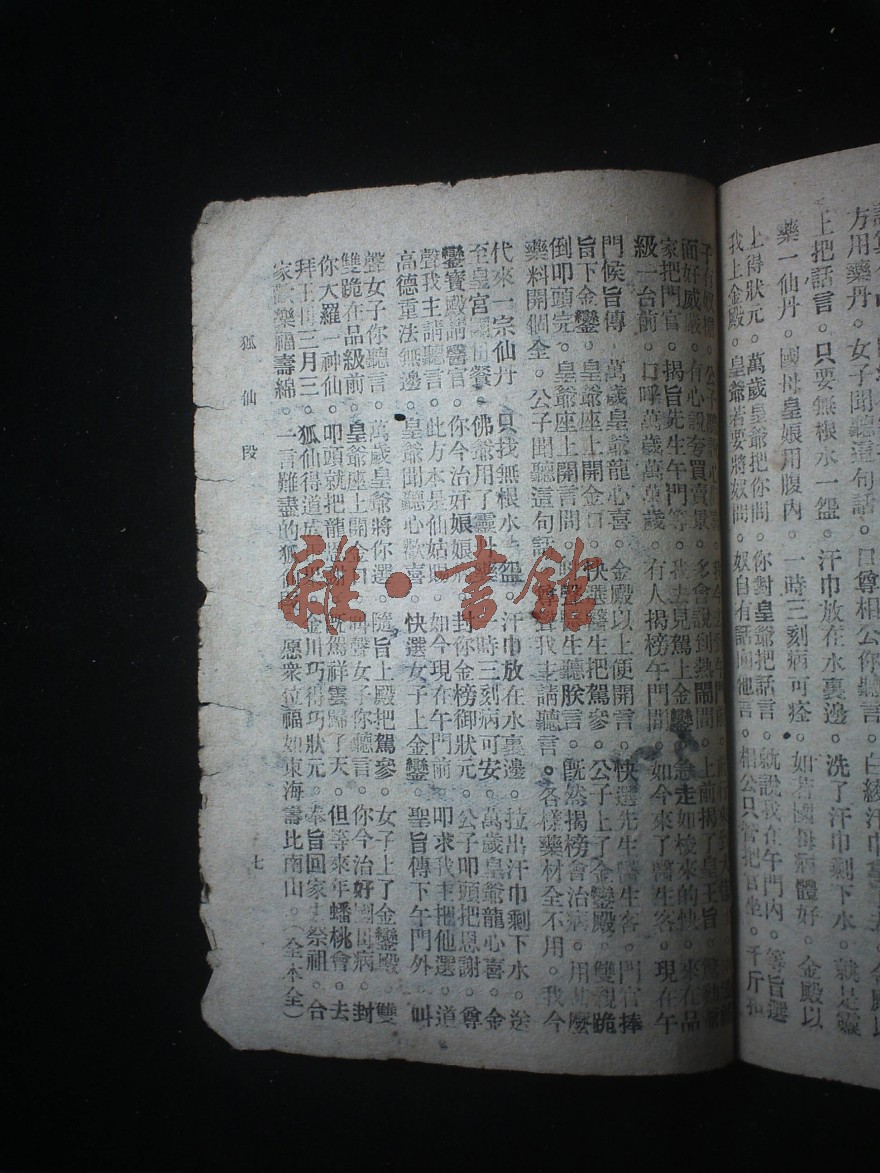 方用藥丹。女子聞聽這句話。口尊相公你聽言。白綾汗巾
上把話言。只要無根水一盌。汗巾放在水裏邊。洗了汗巾剩下水。就是靈
藥一仙丹。國母皇娘用腹內。一時三刻病可痊。如若國母病體好。金殿以
上得狀元。萬歲皇爺把你問。你對皇爺把話言。就說我在午門內。等旨選
我上金殿。皇爺若要將奴問。奴自有話面他言。相公只管把官坐。千斤
面好威嚴。有心說夸買賣景。多會說到熱鬧間。上前揭了皇王旨。
家把門官。揭旨先生午門等。我去見駕上金鑾。急走如梭來的快。來在品
級一台前。口呼萬歲萬萬歲。有人揭榜午門間。如今來了醫生客。現在午
門候旨傳。萬歲皇爺龍心喜。金殿以上便開言。快選先生醫生客。門官捧
旨下金鑾。皇爺座上開金口。快選醫生把駕參。公子上了金鑾殿。雙親跪
倒叩頭完。皇爺座上開言問。醫生聽朕言。既然揭榜會治病。用甚麼
藥料開個全。公子聞聽這句話。我主請聽言。各樣藥材全不用。我今
代來一宗仙丹。只找無根水一盌。汗巾放在水裏邊。拉出汗巾剩下水。送
至皇宮國母餐。佛爺用了靈丹藥。一時三刻病可安。萬歲皇爺龍心喜。金
鑾寶殿請醫官。你今治好娘娘病。封你金榜御狀元。公子叩頭把恩謝。尊
聲我主請聽言。此方本是仙姑賜。如今現在午門前。叩求我主把他選。道
高德重法無邊。皇爺聞聽心歡喜。快選女子上金鑾。聖旨傳下午門外。叫
聲女子你聽言。萬歲皇爺將你選。隨旨上殿把駕參。女子上了金鑾殿。雙
雙跪在品級前。皇爺座上開金口。叫聲女子你聽言。你今治好國母病。封
你大羅一神仙。叩頭就把龍恩謝。既駕祥雲歸了天。但等來年蟠桃會。去
拜王母三月三。狐仙得道金川巧得巧狀元。奉旨回家去祭祖。合
家歡樂福壽綿。一言難盡的狐仙段。愿衆位福如東海壽比南山。(全本全)
狐仙段
七
雜·書館